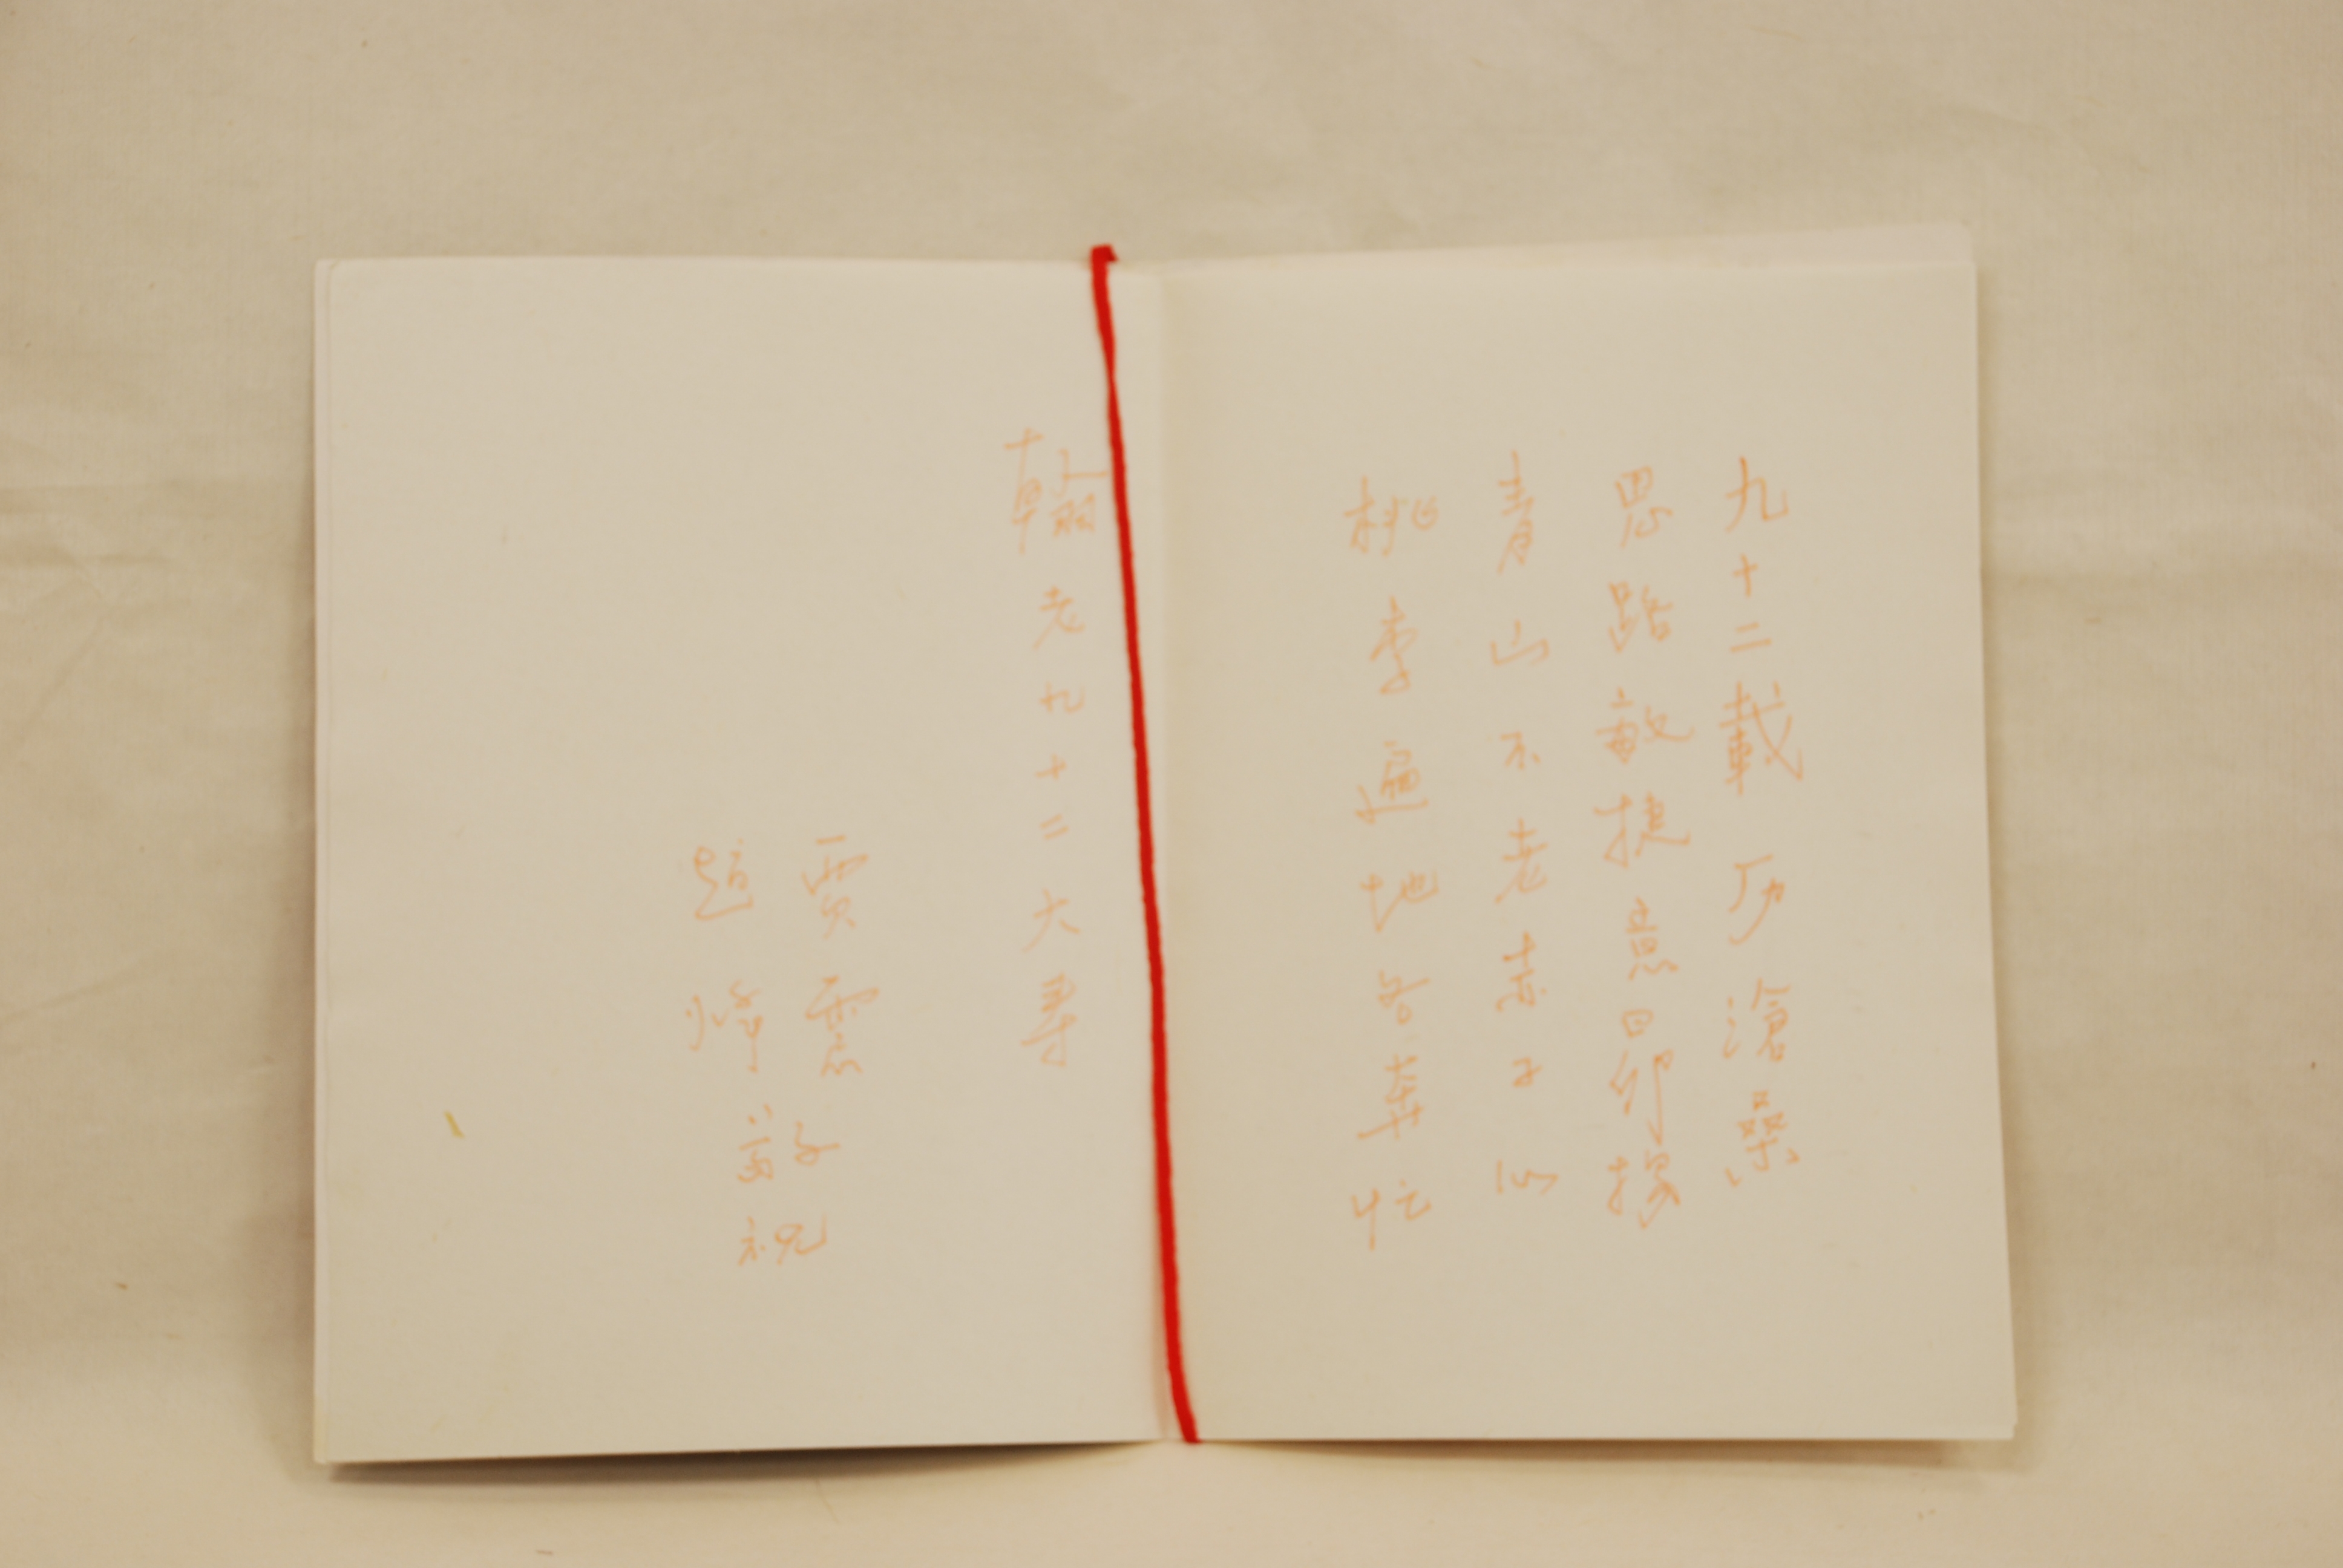 九十二載历滄桑
思路敏捷意昂揚
青山不老赤子心
桃李遍地皆奔忙
翰老九十二大壽
賈震
趙烽
敬祝